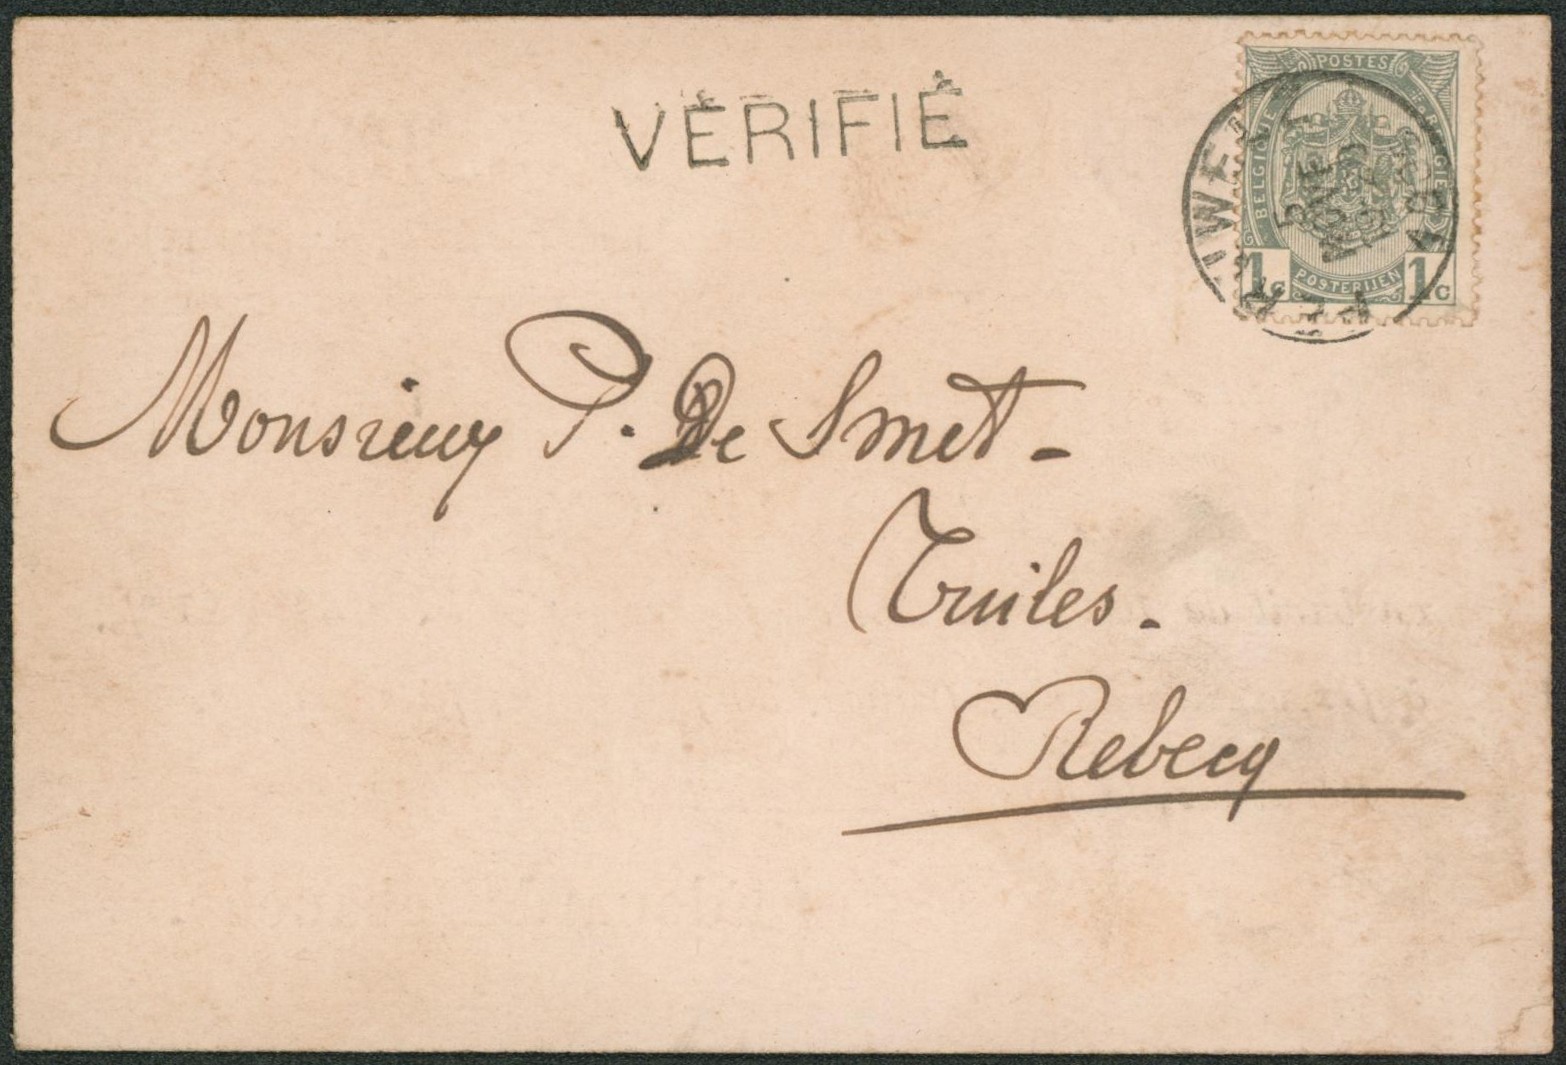 VÉRIFIÉ
POSTES
BELGIQUE
POSTERIJEN
1c 1c
Monsieur P. De Smet -
Tuiles.
Rebecq